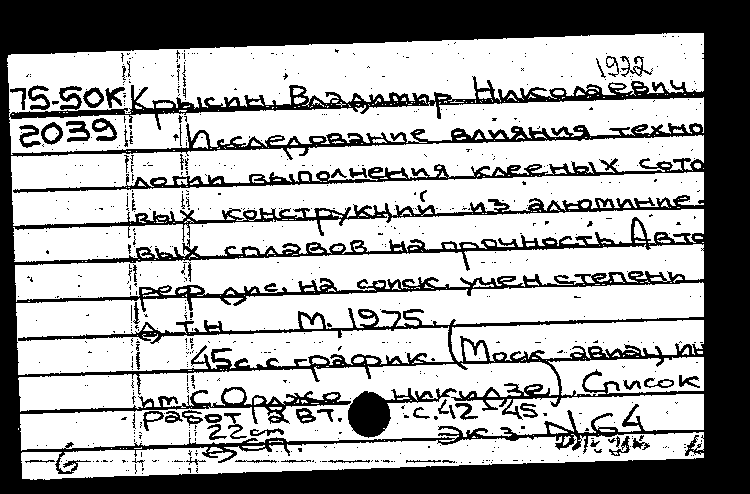 1922
75-50К Крысин, Владимир Николаевич
2039 Исследование влияния техно
логии выполнения клееных сото
вых конструкций из алюминие-
вых сплавов на прочность. Авто
реф. дис. на соиск. учен. степени
д. т. н М., 1975.
45с. с график. (Моск. авиац. ин
им. С. Орджо никидзе). Список
работ авт. : с. 42-45.
22см Экз: N 64
6